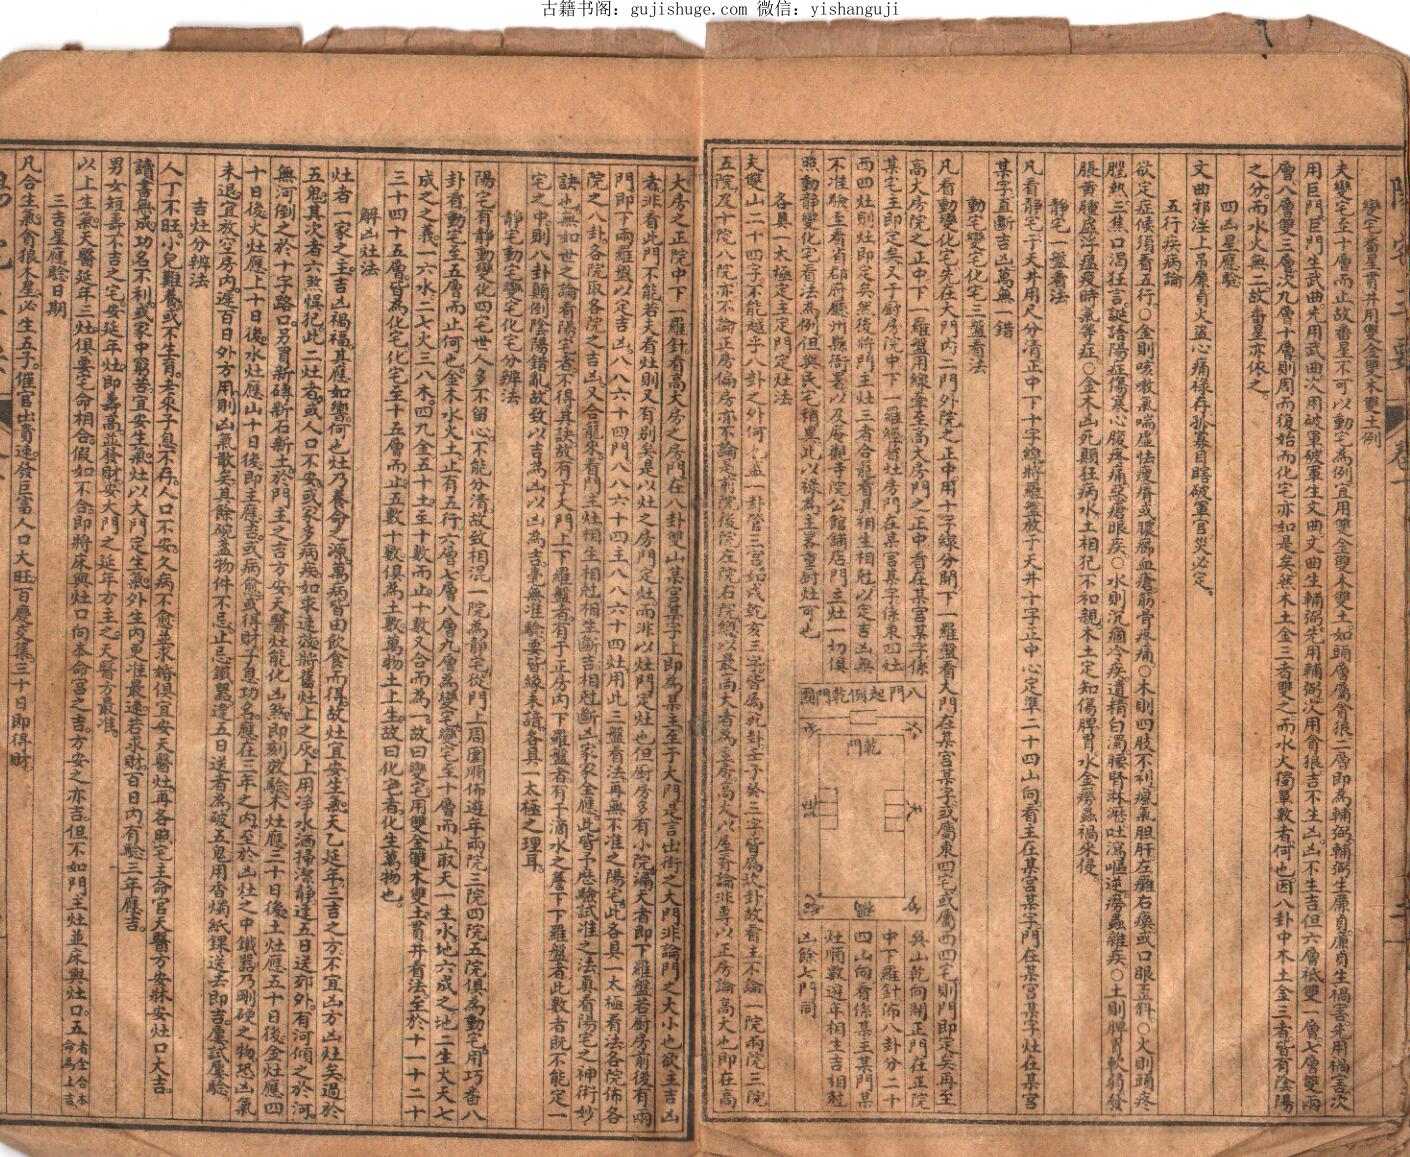 古籍书阁：gujishuge.com 微信：yishanguji
變宅番星貫井用雙金雙木雙土例
夫變宅至十層而止故番星不可以動宅為例宜用雙金雙木雙土如頭層屬貪狼二層即為輔弼輔弼生廉貞廉貞生禍害先用禍害次
用巨門巨門生武曲先用武曲次用破軍破軍生文曲文曲生輔弼先用輔弼次用貪狼吉不生凶凶不生吉但六層祗雙一層七層雙兩
層八層雙三層次九層十層則周而復始而化宅亦如是矣然木土金三者雙之而水火獨單數者何也因八卦中木土金三者皆有陰陽
之分而水火無二故番星亦依之
四凶星應驗
文曲邪淫上吊廉貞火盜心痛祿存孤寡目瞎破軍官災必定
五行疾病論
欲定症候須看五行○金則咳嗽氣喘虛怯瘦瘠或膿腸血瘡筋骨疼痛○木則四肢不利瘋氣胆肝左癱右瘓或口眼歪斜○火則頭疼
膛熱三焦口渴狂言誕語陽症傷寒心腹疼痛惡瘡眼疾○水則沉痼冷疾遺精白濁腰腎淋瀝吐瀉嘔逆癆蟲雜疾○土則脾胃軟弱發
脹黃腫虛浮瘟疫時氣等症○金木凶死顛狂病水土相犯不和親木土定知傷脾胃水金癆蟲禍來侵
靜宅一盤看法
凡看靜宅于天井用尺分清正中下十字線將羅盤放于天井十字正中心定準二十四山向看主在某宮某字門在某宮某字灶在某宮
某字直斷吉凶萬無一錯
動宅變宅化宅三盤看法
凡看動變化宅先在大門內二門外院之正中用十字線分開下一羅盤看大門在某宮某字或屬東四宅或屬西四宅則門即定矣再至
高大房院之正中下一羅盤用線牽至高大房門之正中看在某宮某字係
某宅主即定矣又于厨房院中下一羅經看灶房門在某宮某字係東四灶
西四灶則灶即定矣然後將門主灶三者合龍看其相生相尅以定吉凶無
不准驗至看省郡府廳州縣衙署以及庵觀寺院公館鋪店門主灶一切俱
照動靜變化宅看法為例但與民宅稍異此以祿為主畧重厨灶可也
各具一太極定主定門定灶法
八門起例乾門圖
乾門
巽山乾向開正門在正院
中下羅針佈八卦分二十
四山向看係某主某門某
灶順數遊年相生吉相尅
凶餘七門同
夫雙山二十四字不能越乎八卦之外何也蓋一卦管三宮如戌乾亥三字皆為乾卦壬子癸三字皆為坎卦故看主不論一院兩院三院
五院及十院八院亦不論正房偏房亦不論是前院後院左院右院總以最高大者為主房高大以屋脊論非專以正房論高大也即在高
大房之正院中下一羅針看高大房之房門在八卦雙山某宮某字上即為某主至于大門是言出街之大門非論門之大小也欲主吉凶
者非看此門不能若夫看灶則又有别矣是以灶之房門定灶而非以灶門定灶也但厨房多有小院漏天者即下羅盤若厨房前後有兩
門即下兩羅盤以定吉凶八八六十四門八八六十四主八八六十四灶用此三盤看法再無不准之陽宅此各具一太極看法各院佈各
院之八卦各院取各院之吉凶又合龍來看門主灶相生相尅相生斷吉相尅斷凶家家金應此皆予應驗試准之法真看陽宅之神術妙
訣也無如世之論看陽宅者不得其訣故有于大門上下羅盤者有于正房內下羅盤者有于滴水之簷下下羅盤者此數者既不能定一
宅之中則八卦顛倒陰陽錯亂故致以吉為凶以凶為吉毫無准驗要皆緣未諳各具一太極之理耳
靜宅動宅變宅化宅分辨法
陽宅有靜動變化四宅世人多不留心不能分清故致相混一院為靜宅從門上周圍順佈遊年兩院三院四院五院俱為動宅用巧番八
卦看動宅至五層而止何也金木水火土止有五行六層七層八層九層為變宅變宅至十層而止取天一生水地六成之地二生火天七
成之之義一六水二七火三八木四九金五十土至十數而止十數又合而為一故曰變宅用雙金雙木雙土貫井看法至於十一十二十
三十四十五層皆為化宅化宅至十五層而止五數十數俱為土數萬物土上生故曰化宅者化生萬物也
解凶灶法
灶者一家之主吉凶禍福其應如響何也灶乃養命之源萬病皆由飲食而得故灶宜安生氣天乙延年三吉之方不宜凶方凶灶莫過於
五鬼其次者六煞惧犯此二灶者或人口不安或家多病疾如求速效將舊灶上之灰上用净水洒掃潔靜逢五日送郊外有河傾之於河
無河倒之於十字路口另買新磚新石新土於門主之吉方安天醫灶能化凶煞即刻效驗木灶應三十日後土灶應五十日後金灶應四
十日後火灶應上十日後水灶應山十日後即主應吉或病愈或得財子息功名應在三年之內至於凶灶之中鐵器乃剛硬之物恐凶氣
未退宜放空房內遲百日外方用則凶氣散矣其餘碗盞物件不忌止忌鐵器逢五日送者為破五鬼用香燭紙錁送去即吉屢試屢驗
吉灶分辨法
人丁不旺小兒難養或不生育老來子息不存人口不安久病不愈並求婚俱宜安天醫灶再各照宅主命宮天醫方安牀安灶口大吉
讀書無成功名不利或家中窮苦宜安生氣灶以大門定生氣外生內更准最速若求財百日內有驗三年應吉
男女短壽不吉之宅安延年灶即壽高並發財安大門之延年方主之天醫方最准
以上生氣天醫延年三灶俱要宅命相合假如不合即將床與灶口向本命宮之吉方安之亦吉但不如門主灶並床與灶口五者全合本命為上吉
三吉星應驗日期
凡合生氣貪狼木星必生五子催官出貴速發巨富人口大旺百慶交集三十日即得財